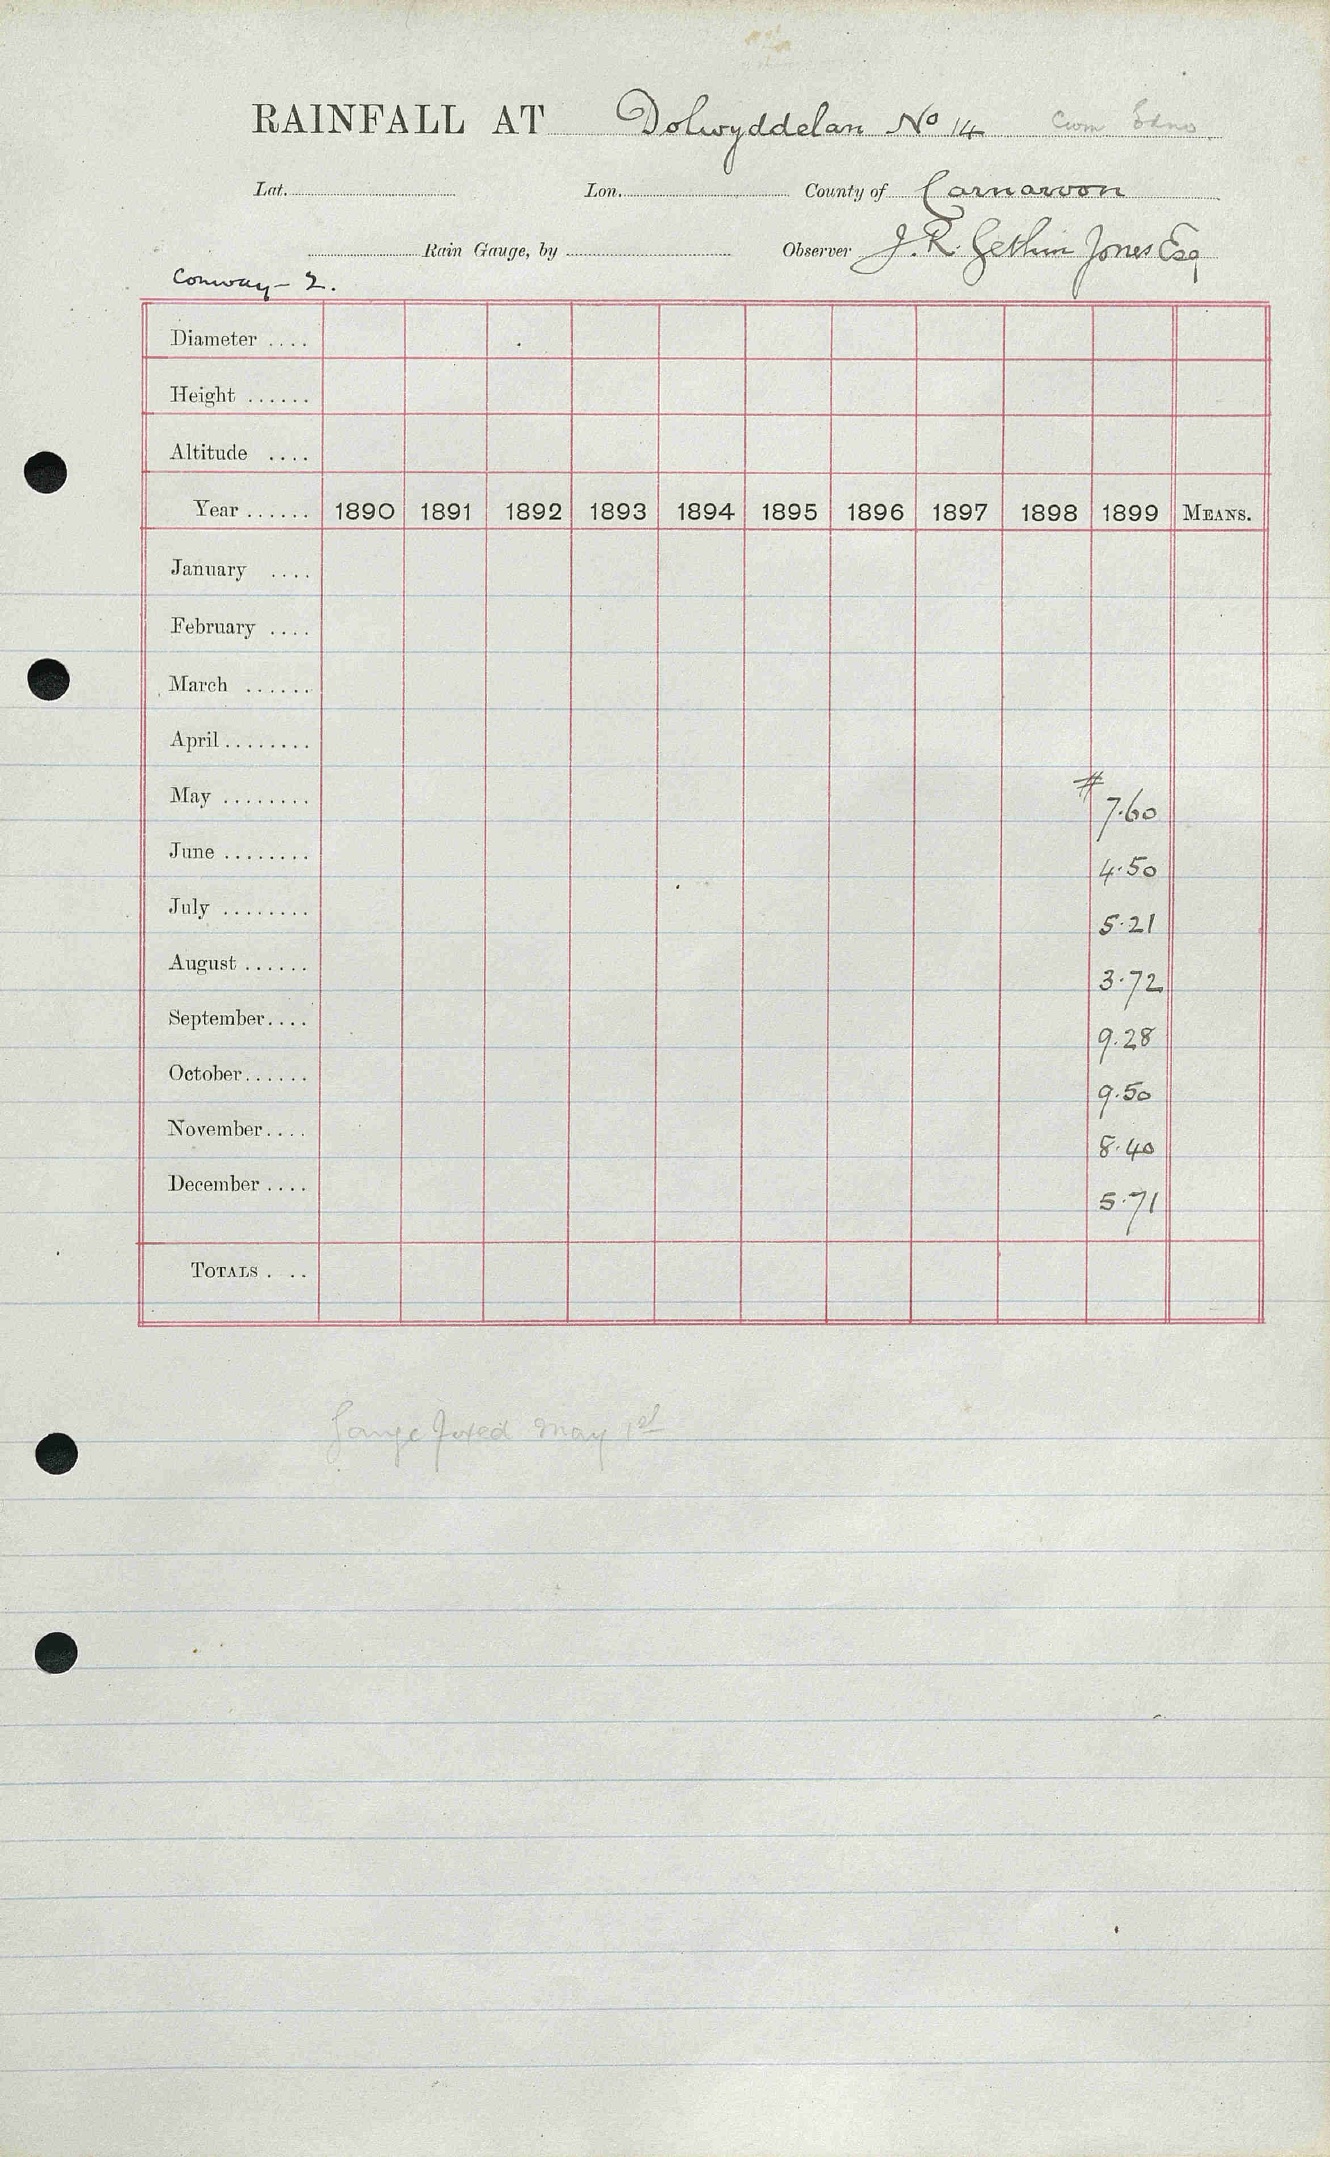 RAINFALL AT Dolwyddelan No 14 Cwm Edno
Lat. Lon. County of Carnarvon
Rain Gauge, by Observer J. R. Gethin Jones Esq
Conway - 2.
Diameter ....
Height ......
Altitude ....
Year ...... 1890 1891 1892 1893 1894 1895 1896 1897 1898 1899 MEANS.
January ....
February ....
March ......
April ........
May ........ # 7.60
June ........ 4.50
July ........ 5.21
August ...... 3.72
September.... 9.28
October...... 9.50
November.... 8.40
December .... 5.71
TOTALS . ..
Gauge fixed May 1st